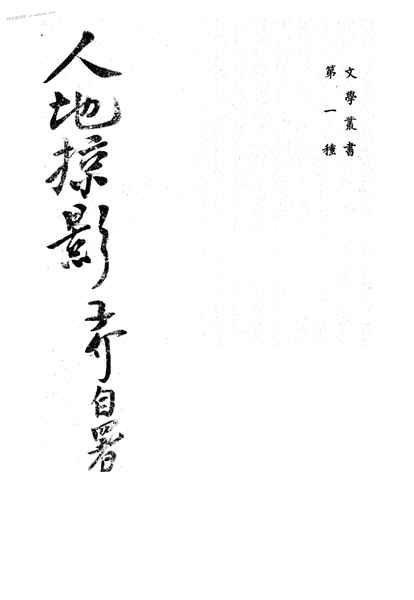 文學叢書
第一種
人地掠影
子介自署